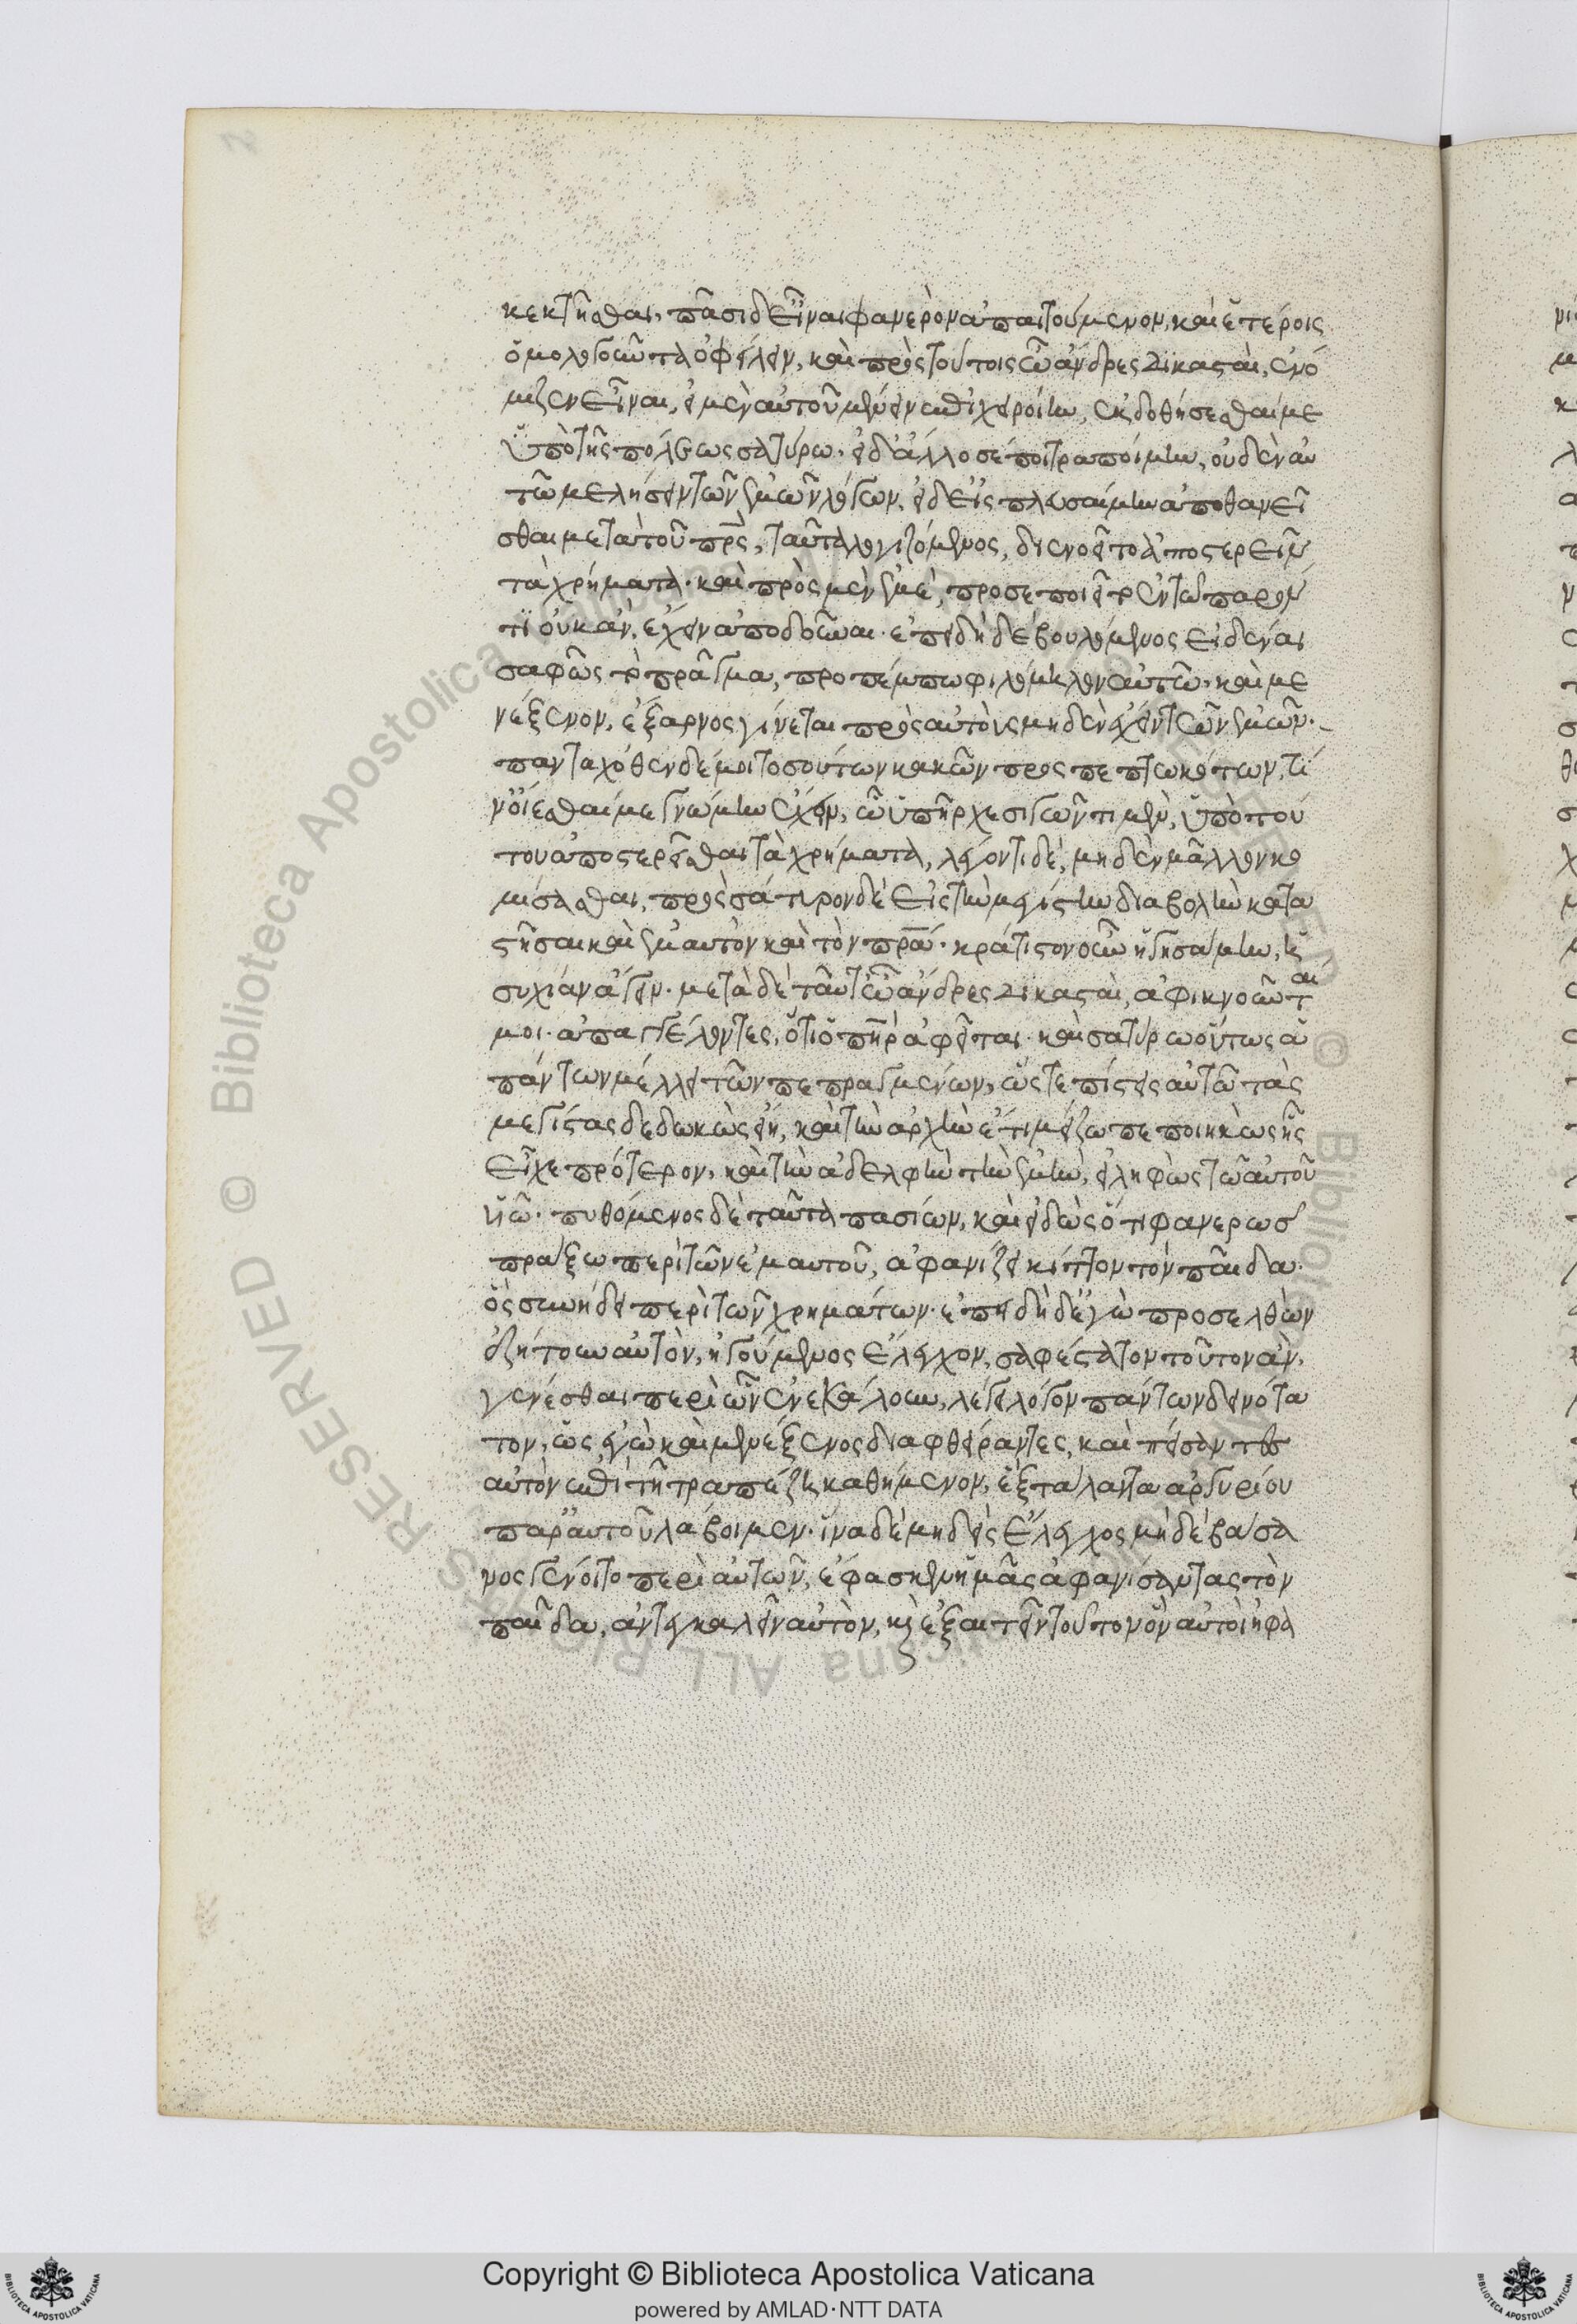 κεκτῆσθαι, πᾶσι δ' εἶναι φανερὸν ἀπαιτούμενον, καὶ ἑτέροις
ὁμολογοῦντα ὀφείλειν, καὶ πρὸς τούτοις ὦ ἄνδρες δικασταὶ, ἐνό
μιζεν εἶναι, εἰ μὲν αὐτοῦ μένειν ἐπιχειροίην, ἐκδοθήσεσθαί με
ὑπὸ τῆς πόλεως σατύρω· εἰ δ' ἄλλοσέ ποι τραποίμην, οὐδὲν αὐ
τῶ μελήσειν τῶν ἐμῶν λόγων, εἰ δ' εἰς πλευσαίμην ἀποθανεῖ
σθαι μετὰ τοῦ πρς, ταῦτα λογιζόμενος, διενοεῖτο ἀποστερεῖν
τὰ χρήματα· καὶ πρὸς μὲν ἐμὲ, προσεποιεῖτο ἐν τῶ παρόν
τι οὐκ ἂν, ἔχειν ἀποδοῦναι· ἐπειδὴ δὲ βουλόμενος εἰδέναι
σαφῶς τὸ πρᾶγμα, προπέμπω φιλόμηλον αὐτῶ· καὶ με
νέξενον, ἔξαρνος γίνεται πρὸς αὐτοὺς μηδὲν ἔχειν τῶν ἐμῶν·
πανταχόθεν δέ μοι τοσούτων κακῶν προσπεπτωκότων, τί
ν' οἴεσθαί με γνώμην ἔχειν, ὧ ὑπῆρχε σιγῶντι μὲν, ὑπὸ τού
του ἀποστερεῖσθαι τὰ χρήματα, λέγοντι δὲ, μηδὲν μᾶλλον κο
μίσασθαι, πρὸς σάτυρον δὲ εἰς τὴν μεγίστην διαβολὴν κατα
στῆσαι καὶ ἐμαυτὸν καὶ τὸν πρα· κράτιστον οὖν ἡγησάμην, ἡ
συχίαν ἄγειν· μετὰ δὲ ταῦτ' ὦ ἄνδρες δικασταὶ, ἀφικνοῦνται
μοι· ἀπαγγέλοντες, ὅτι ὁ πηρ ἀφεῖται· καὶ σατύρω οὕτως ἁ
πάντων μέλλει τῶν πεπραγμένων, ὥστε πίστεις αὐτῶ τὰς
μεγίστας δεδωκὼς εἴη, καὶ τὴν ἀρχὴν ἔτι μείζω πεποιηκὼς ἧς
εἶχε πρότερον, καὶ τὴν ἀδελφὴν τὴν ἐμὴν, εἰληφὼς τῶ αὐτοῦ
υἱῶ· πυθόμενος δὲ ταῦτα πασίων, καὶ εἰδὼς ὅτι φανερῶς
πράξω περὶ τῶν ἐμαυτοῦ, ἀφανίζει κίττον τὸν παῖδα·
ὃς συνήδει περὶ τῶν χρημάτων· ἐπειδὴ δ' ἐγὼ προσελθὼν
ἐζήτουν αὐτὸν, ἡγούμενος ἔλεγχον, σαφέστατον τοῦτον ἂν,
γενέσθαι περὶ ὧν ἐνεκάλουν, λέγει λόγον πάντων δεινότα
τον, ὡς ἐγὼ καὶ μενέξενος διαφθείραντες, καὶ πείσαντες
αὐτὸν ἐπὶ τῆ τραπέζη καθήμενον, ἓξ τάλαντα ἀργυρίου
παρ' αὐτοῦ λάβοιμεν· ἵνα δὲ μηδεὶς ἔλεγχος μηδὲ βάσα
νος γένοιτο περὶ αὐτῶν, ἔφασκεν ἡμᾶς ἀφανίσαντας τὸν
παῖδα, ἀντεγκαλεῖν αὐτὸν, κ ἐξαιτεῖν τοῦτον ὃν αὐτοὶ ἠφα
Copyright © Biblioteca Apostolica Vaticana
powered by AMLAD·NTT DATA